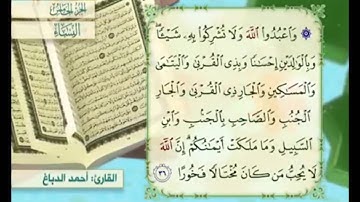 الجزء الخامس
النساء
۞ وَاعْبُدُوا اللَّهَ وَلَا تُشْرِكُوا بِهِ شَيْئًا
وَبِالْوَالِدَيْنِ إِحْسَانًا وَبِذِي الْقُرْبَى وَالْيَتَامَى
وَالْمَسَاكِينِ وَالْجَارِ ذِي الْقُرْبَى وَالْجَارِ
الْجُنُبِ وَالصَّاحِبِ بِالْجَنْبِ وَابْنِ
السَّبِيلِ وَمَا مَلَكَتْ أَيْمَانُكُمْ إِنَّ اللَّهَ
لَا يُحِبُّ مَنْ كَانَ مُخْتَالًا فَخُورًا ٣٦
القارئ: أحمد الدباغ